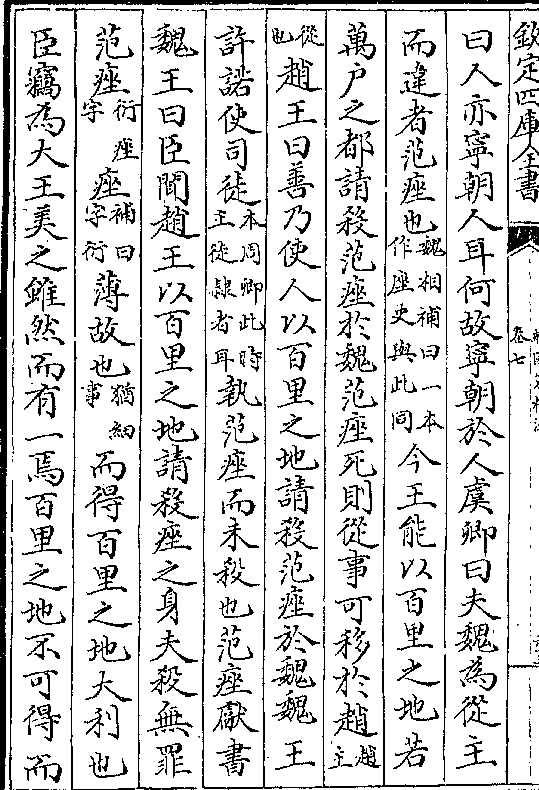 欽定四庫全書
卷七
曰人亦寧朝人耳何故寧朝於人虞卿曰夫魏為從主
而違者范痤也魏相補曰一本作座史與此同今王能以百里之地若
萬户之都請殺范痤於魏范痤死則從事可移於趙趙主
從也趙王曰善乃使人以百里之地請殺范痤於魏魏王
許諾使司徒本周卿此時主徒隸者耳執范痤而未殺也范痤獻書
魏王曰臣聞趙王以百里之地請殺痤之身夫殺無罪
范痤衍痤字痤補曰字衍薄故也猶細事而得百里之地大利也
臣竊為大王美之雖然而有一焉百里之地不可得而